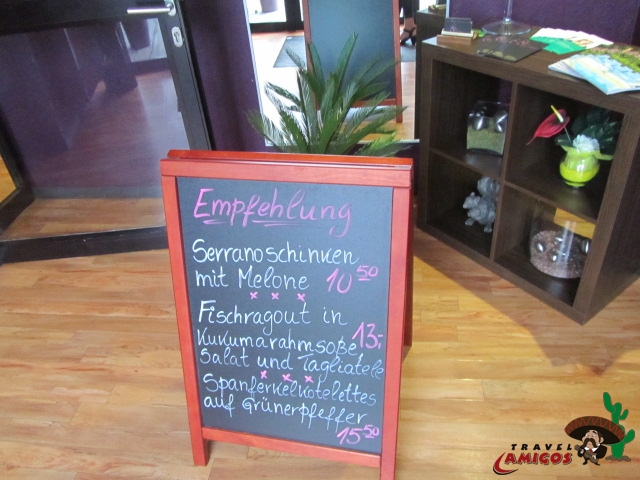 Empfehlung
Serranoschinken
mit Melone 10 50
x x x
Fischragout in
Kukumarahmsoße 13,-
Salat und Tagliatele
x x x
Spanferkelkotelettes
auf Grünerpfeffer
15 50
TRAVEL
AMIGOS